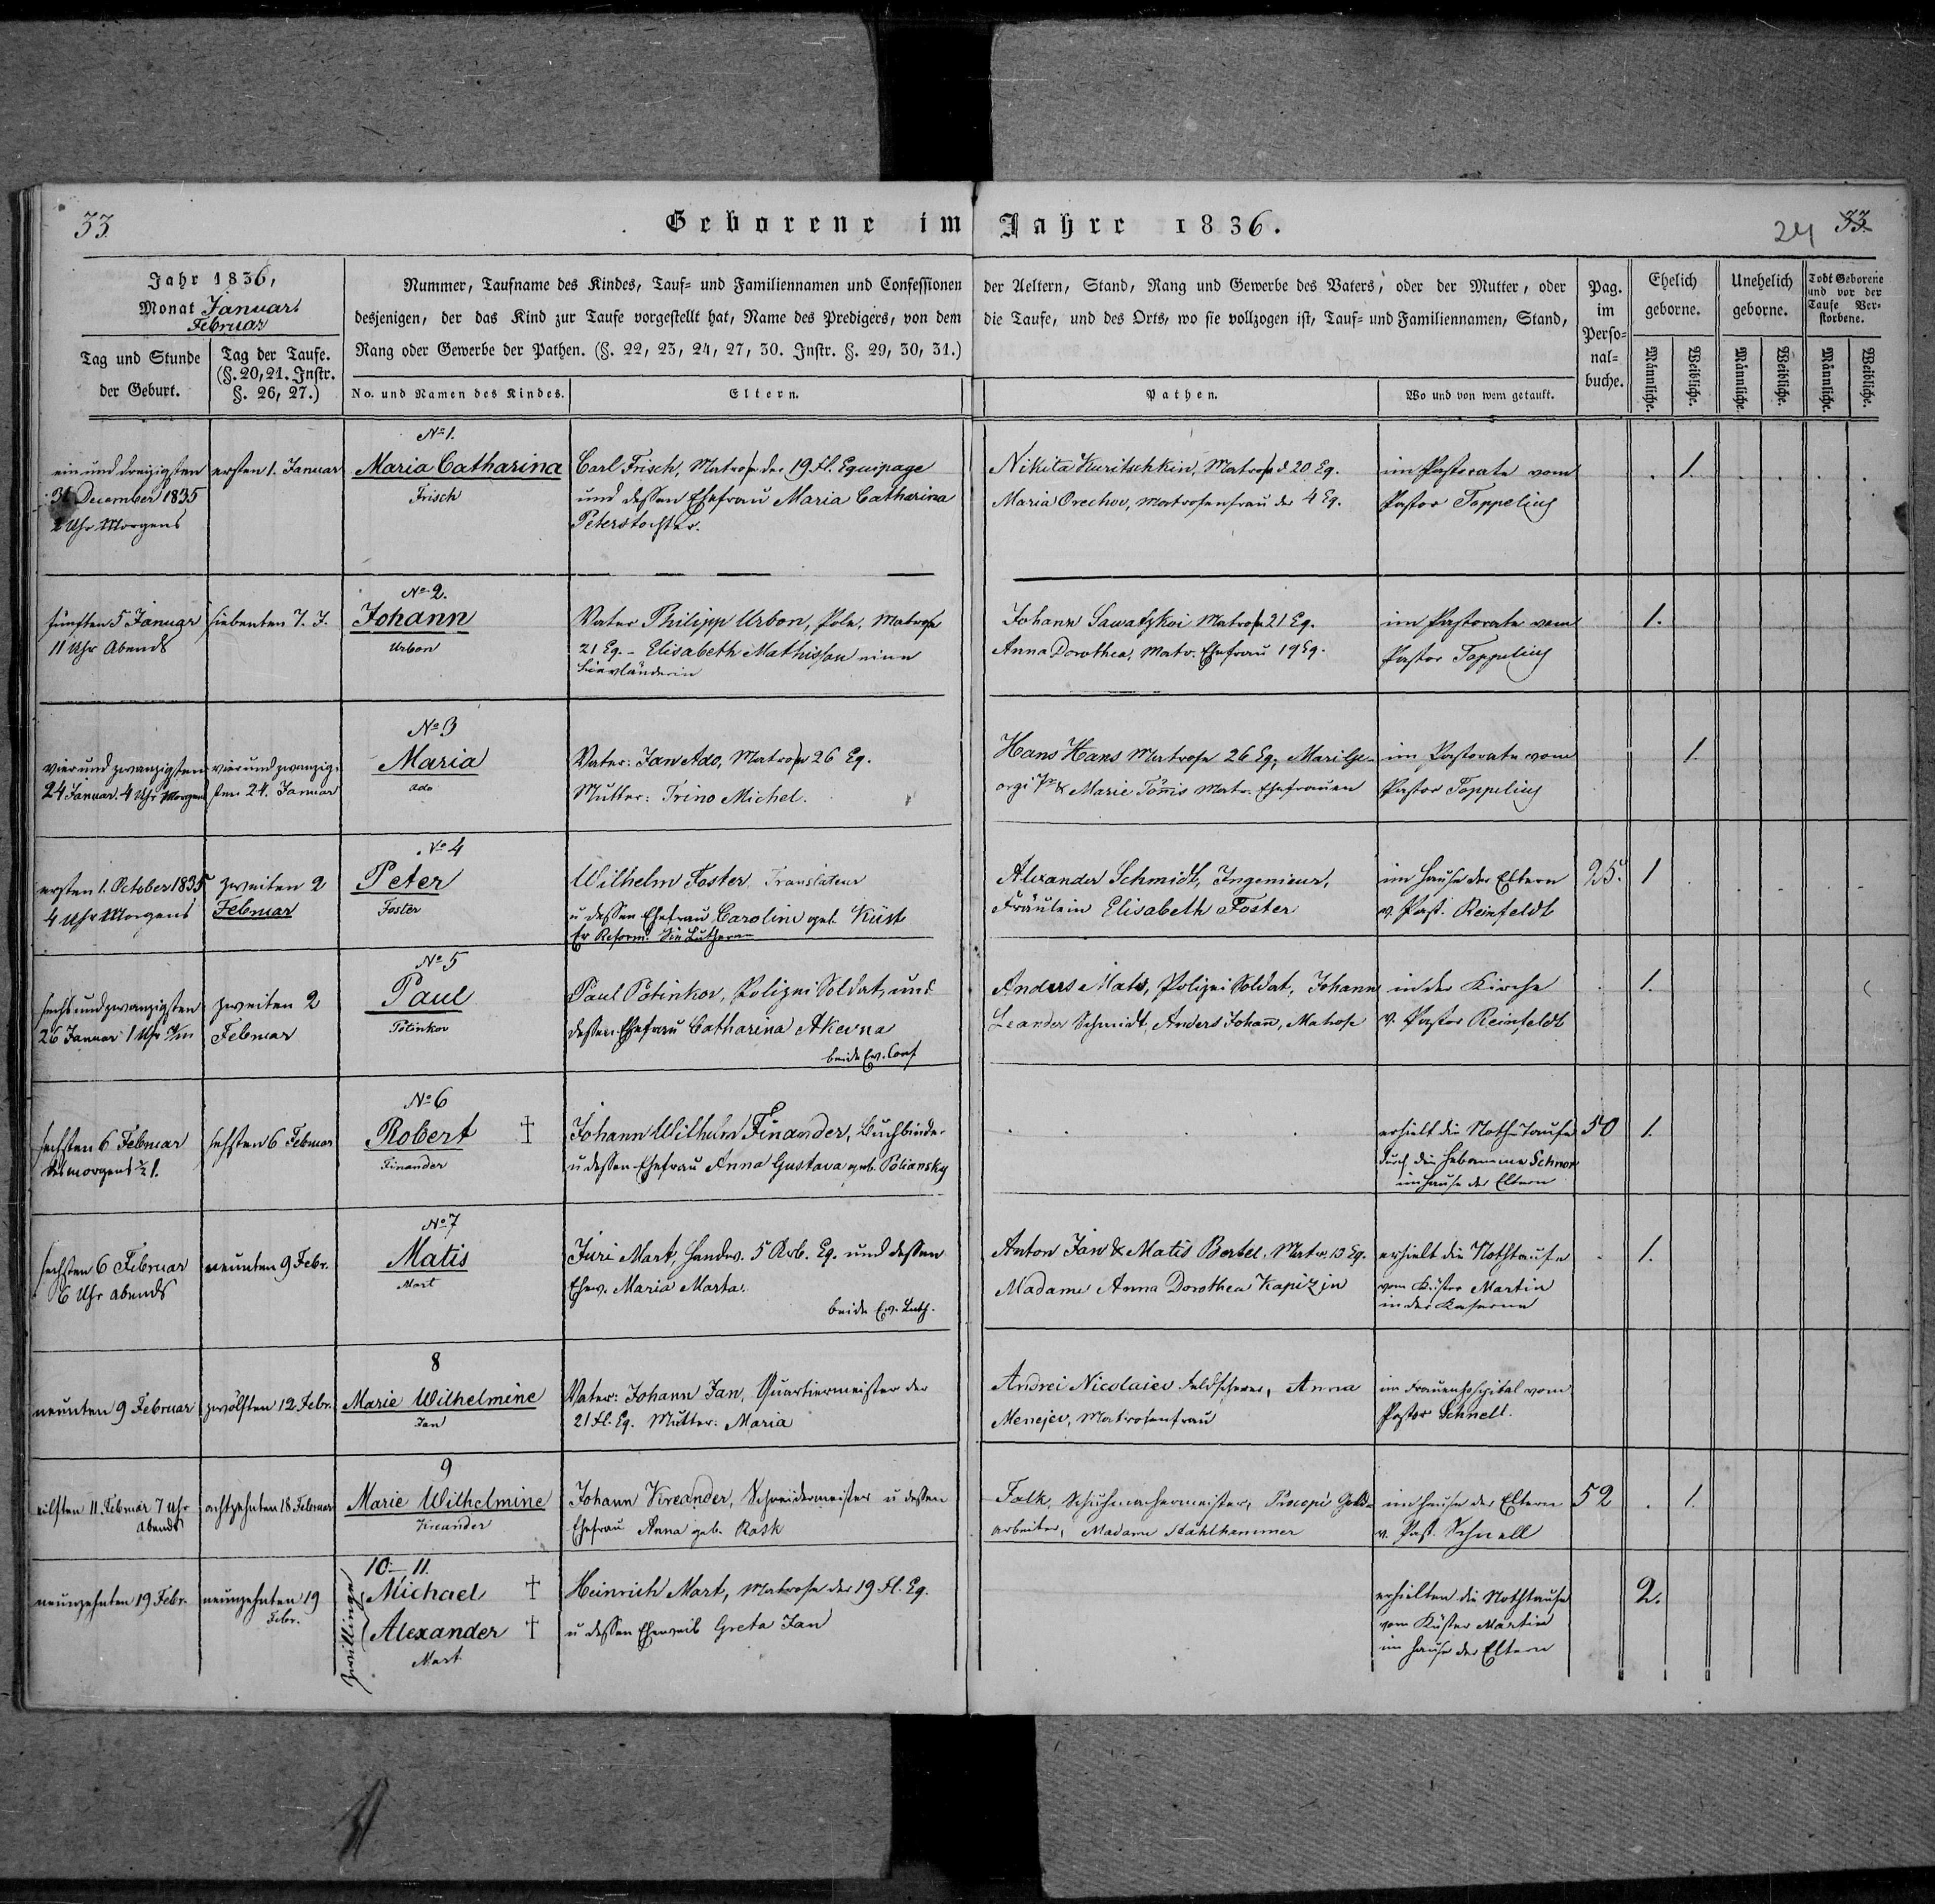 33.
Geborene im Jahre 1836.
24 33.
Jahr 1836,
Monat Januar.
Februar
Tag und Stunde
der Geburt.
Tag der Taufe.
(§. 20, 21. Instr.
§. 26, 27.)
Nummer, Taufname des Kindes, Tauf- und Familiennamen und Confessionen der Aeltern, Stand, Rang und Gewerbe des Vaters, oder der Mutter, oder
desjenigen, der das Kind zur Taufe vorgestellt hat, Name des Predigers, von dem die Taufe, und des Orts, wo sie vollzogen ist, Tauf- und Familiennamen, Stand,
Rang oder Gewerbe der Pathen. (§. 22, 23, 24, 27, 30. Instr. §. 29, 30, 31.)
No. und Namen des Kindes.
Eltern.
Pathen.
Wo und von wem getauft.
Pag.
im
Perso-
nal-
buche.
Ehelich
geborne.
Unehelich
geborne.
Todt Geborene
und vor der
Taufe Ver-
storbene.
Männliche.
Weibliche.
Männliche.
Weibliche.
Männliche.
Weibliche.
ein und dreizigsten
31 December 1835
2 Uhr Morgens
ersten 1. Januar
No 1.
Maria Catharina
Frisch
Carl Frisch, Matrose der 19 Fl. Equipage
und dessen Ehefrau Maria Catharina
Peterstochter.
Nikita Kuritschkin, Matrose d 20 Eq.
Maria Orechov, Matrosenfrau der 4 Eq.
im Pastorate vom
Pastor Toppelius
1.
fünften 5 Januar
11 Uhr Abends
siebenten 7. J.
No 2.
Johann
Urbon
Vater Philipp Urbon, Pole, Matrose
21 Eq. – Elisabeth Mathisson eine
Johann Sawatzkoi Matrose 21 Eq.
Anna Dorothea, Matr. Ehefrau 19 Eq.
im Pastorate vom
Pastor Toppelius
1.
vier und zwanzigsten
24 Januar. 4 Uhr Morgens
vier und zwanzig-
sten 24. Januar
No 3
Maria
Ado
Vater: Jan Ado, Matrose 26 Eq.
Mutter: Trino Michel.
Hans Hans Matrose 26 Eq.,
& Marie Tönnis Matr. Ehefrauen
im Pastorate vom
Pastor Toppelius
1.
ersten 1. October 1835
4 Uhr Morgens
zweiten 2
Februar
No 4
Peter
Foster
Wilhelm Foster, Translateur
u dessen Ehefrau Caroline geb. Küst
Er Reform. Sie Lutheran
Alexander Schmidt, Ingenieur,
Fräulein Elisabeth Foster
im Hause der Eltern
v. Past. Reinfeldt
25.
1
sechs und zwanzigsten
26 Januar 1 Uhr
zweiten 2
Februar
No 5
Paul
Potinkov
Paul Potinkov, Polizei Soldat, und
dessen Ehefrau Catharina Akevna
beide Ev. Conf
Anders Mats, Polizei Soldat, Johann
Leander Schmidt, Anders Johan, Matrose
in der Kirche
v. Pastor Reinfeldt
1.
sechsten 6 Februar
des morgens ½ 1.
sechsten 6 Februar
No 6
Robert †
Finander
Johann Wilhelm Finander, Buchbinder
u dessen Ehefrau Anna Gustava geb. Poliansky
erhielt die Noth-Taufe
durch die Hebamme Schnor
im Hause der Eltern
50
1.
sechsten 6 Februar
6 Uhr abends
neunten 9 Febr.
No 7
Matis
Mart
Jüri Mart, Handw. 5 Arb. Eq. und dessen
Ehew. Maria Marta.
beide Ev. Luth.
Anton Jan & Matis Bertel, Matr. 13 Eq.
Madame Anna Dorothea Kapizin
erhielt die Nothtaufe
vom Küster Martin
in der Kaserne
1.
neunten 9 Februar
zwölften 12 Febr.
8
Marie Wilhelmine
Jan
Vater: Johann Jan, Quartiermeister der
21 Fl. Eq. Mutter: Maria
Andrei Nicolaiev Feldscherer, Anna
Menejev, Matrosenfrau
im Frauenhospital vom
Pastor Schnell.
eilften 11. Februar 7 Uhr
Abends
achtzehnten 18 Februar
9
Marie Wilhelmine
Kreander
Johann Kreander, Schneidermeister u dessen
Ehefrau Anna geb. Rask
Falk, Schuhmachermeister, Procopé Gold-
arbeiter, Madame Stahlhammer
im Hause der Eltern
v. Past. Schnell
52
1.
neunzehnten 19 Febr.
neunzehnten 19
Febr.
10 – 11.
Zwillinge
Michael †
Alexander †
Mart
Heinrich Mart, Matrose der 19 Fl. Eq.
u dessen Eheweib Greta Jan
erhielten die Nothtaufe
vom Küster Martin
im Hause der Eltern
2.